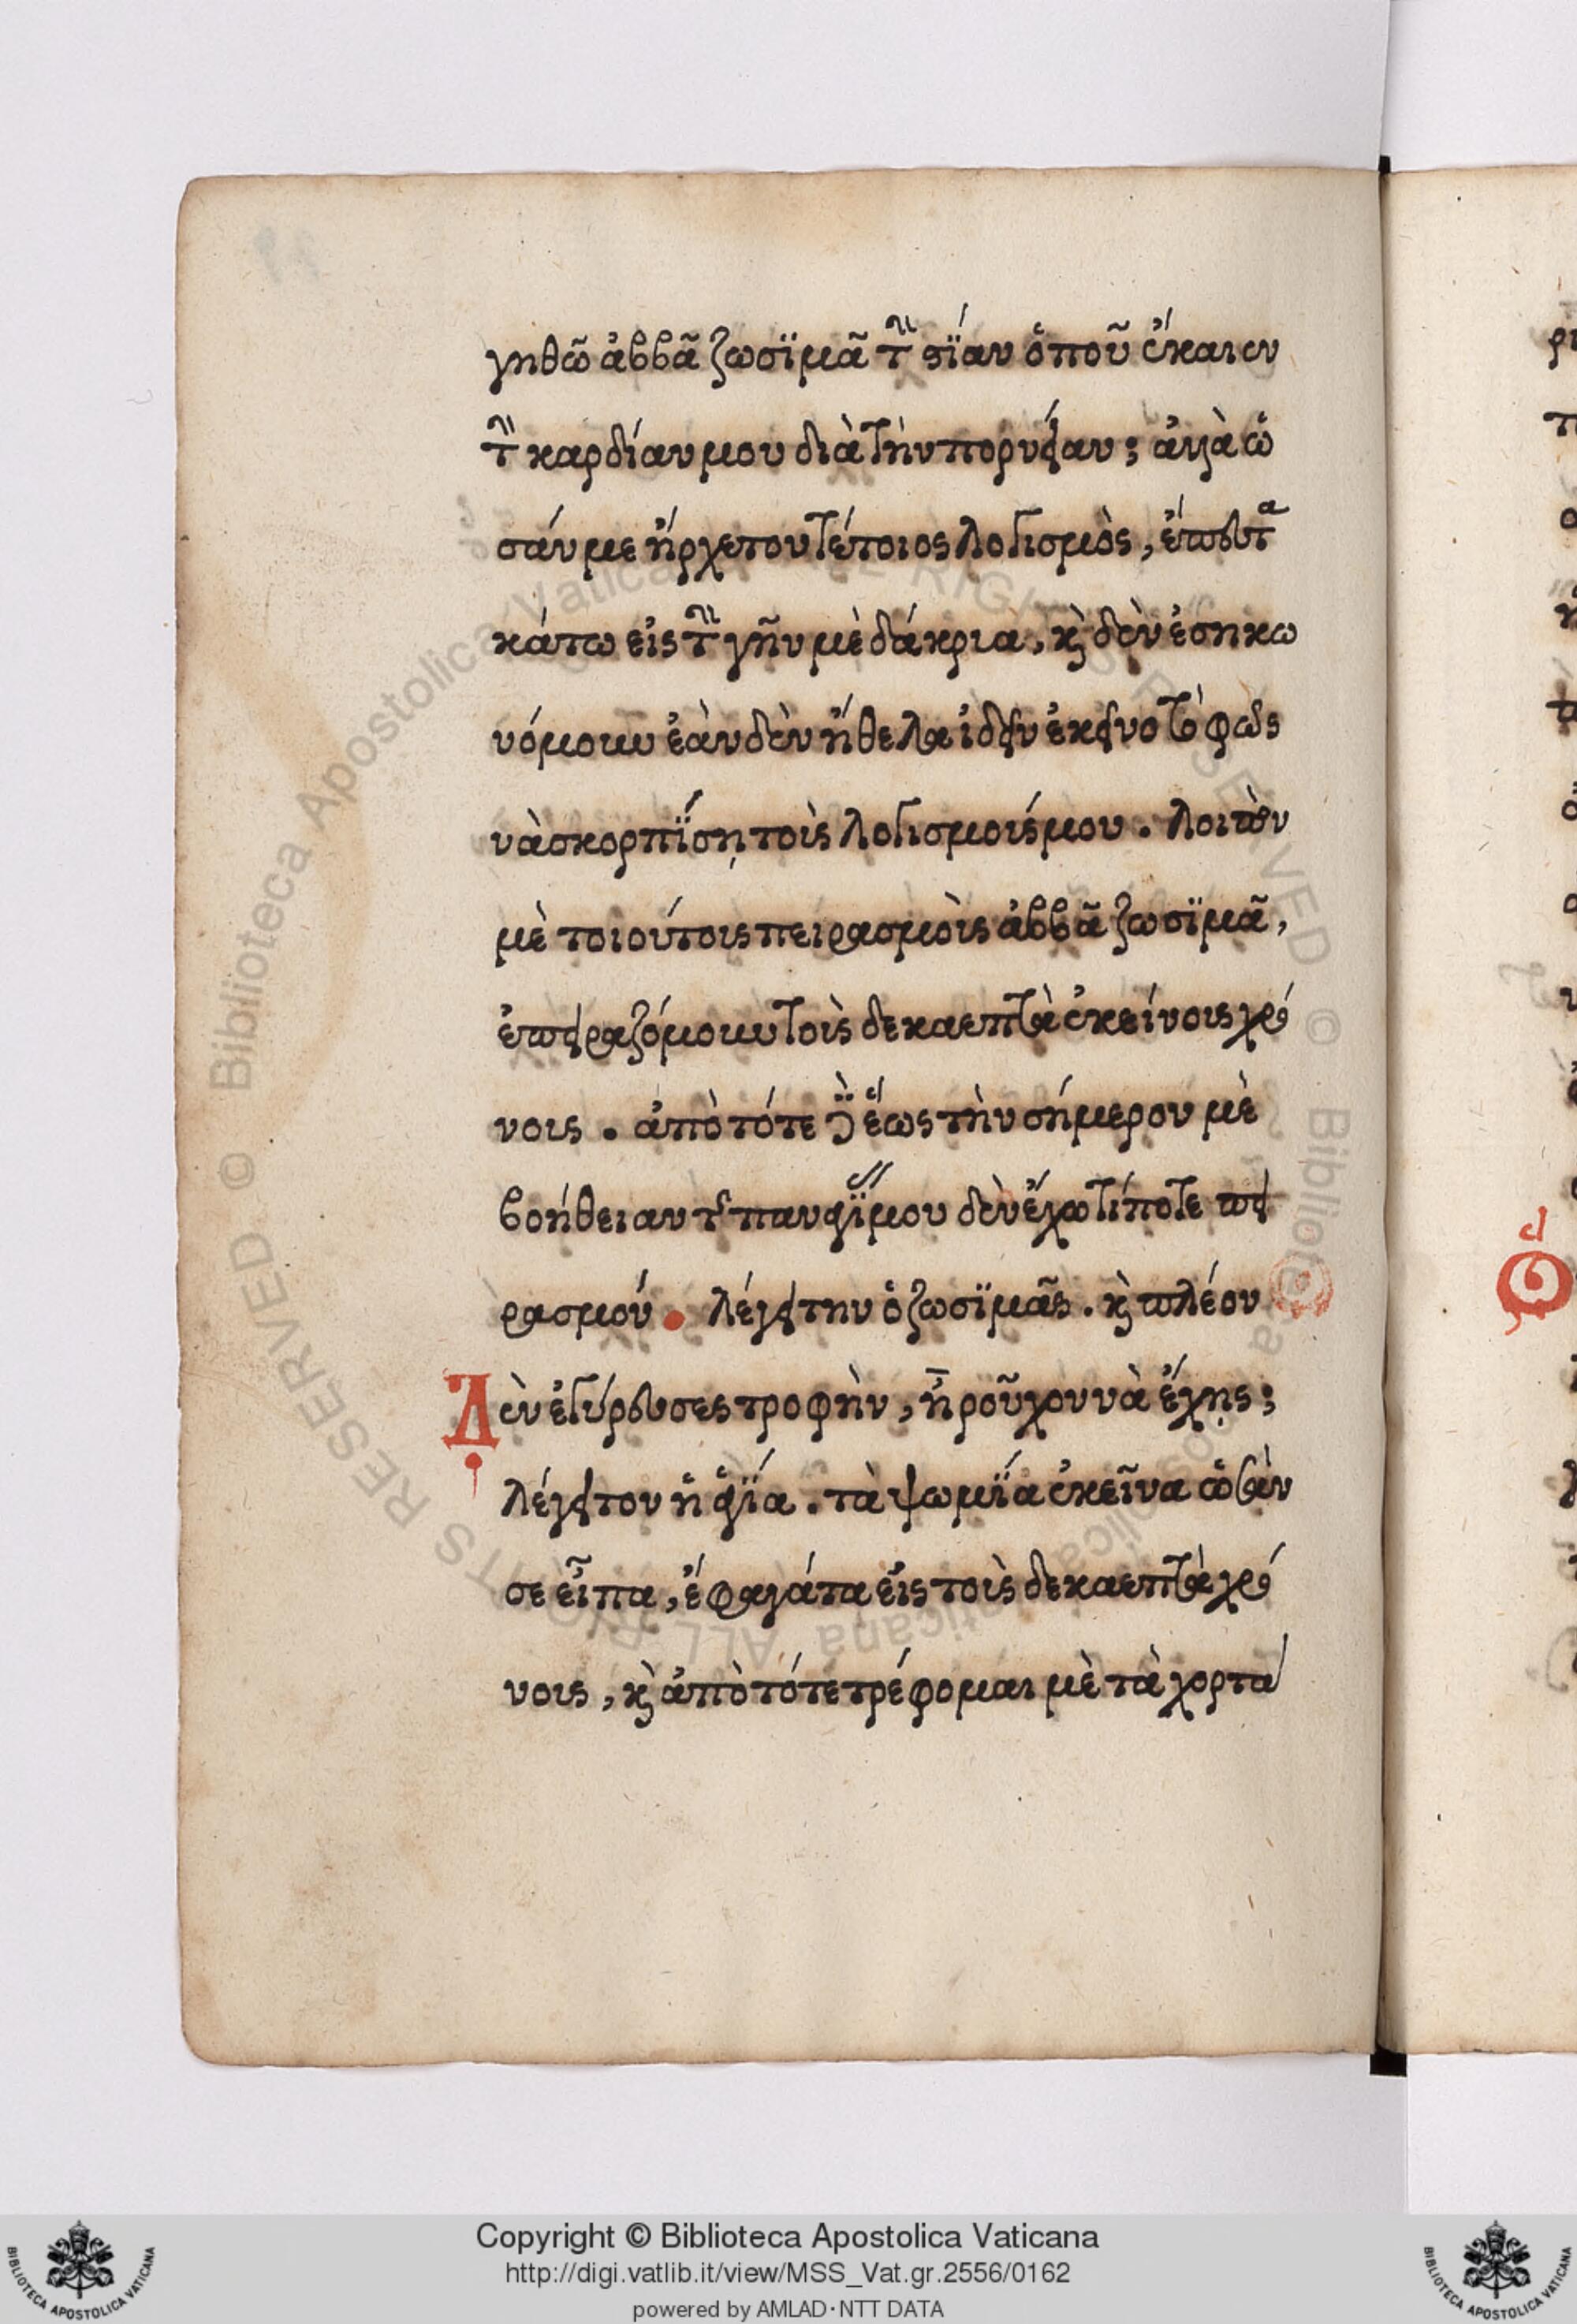 γηθῶ ἀββᾶ ζωσϊμᾶ τὴν στϊάν ὁποῦ ἔκαιεν
τὴν καρδίαν μου διὰ τὴν πορνείαν; ἀλλὰ ὡ
σάν με ἤρχετον τέτοιος λογισμὸς, ἔπευτα
κάτω εἰς τὴν γῆν μὲ δάκρια, κ̀ δὲν ἐσηκω
νόμουν ἐὰν δὲν ἤθελα ἰδεῖν ἐκεῖνο τὸ φῶς
νὰ σκορπΐσῃ τοὶς λογισμοίς μου. λοιπὸν
μὲ τοιούτοις πειρασμοὶς ἀββᾶ ζωσϊμᾶ,
ἐπειραζόμουν τοὶς δεκαεπτὰ ἐκείνοις χρό
νοις. ἀπὸ τότε καὶ ἕως τὴν σήμερον μὲ
βοήθειαν τῆς παναγΐας μου δὲν ἔχω τίποτε πει
ρασμού. λέγει την ὁ ζωσϊμᾶς. κ̀ πλέον
Δὲν ἐγύρευσες τροφὴν, ἢ ροῦχον νὰ ἔχῃς;
λέγει τον ἡ ἁγΐα. τὰ ψωμΐα ἐκεῖνα ὡσὰν
σε εἶπα, ἔφαγά τα εἰς τοὶς δεκαεπτὰ χρό
νοις, κ̀ ἀπὸ τότε τρέφομαι μὲ τὰ χορτά
Copyright © Biblioteca Apostolica Vaticana
http://digi.vatlib.it/view/MSS_Vat.gr.2556/0162
powered by AMLAD·NTT DATA